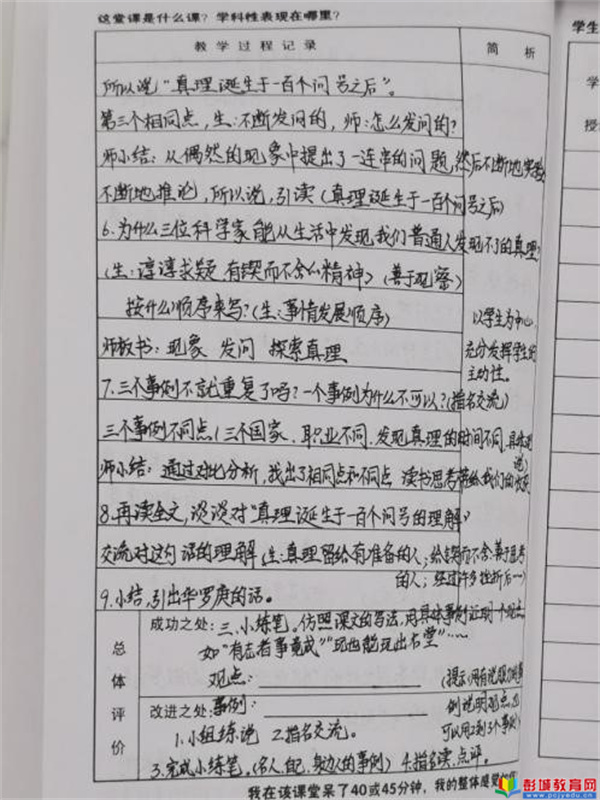 这堂课是什么课？学科性表现在哪里？
教学过程记录 简析
所以说“真理诞生于一百个问号之后”。
第三个相同点，生：不断发问的，师：怎么发问的？
师小结：从偶然的现象中提出了一连串的问题，然后不断地实验
不断地推论，所以说，引读（真理诞生于一百个问号之后）
6.为什么三位科学家能从生活中发现我们普通人发现不了的真理？
（生：谆谆求疑 有锲而不舍精神）（善于观察）
按什么顺序来写？（生：事情发展顺序）
以学生为中心，
师板书：现象 发问 探索真理
充分发挥学生的
主动性。
7.三个事例不就重复了吗？一个事例为什么不可以？（指名交流）
三个事例不同点（三个国家、职业不同、发现真理的时间不同、具体
说）
师小结：通过对比分析，找出了相同点和不同点 读书思考带给我们的
8.再读全文，谈谈对“真理诞生于一百个问号的理解”
交流对这句话的理解（生：真理留给有准备的人；给锲而不舍、善于思考
的人；经过许多挫折后…）
9.小结，引出华罗庚的话。
总体评价
成功之处：三、小练笔。仿照课文的写法，用具体事例证明一个观点
如“有志者事竟成”“玩也能玩出名堂”……
观点： （提示：用有说服力的事
改进之处：事例： 例说明观点，
可以用2到3个事例）
1.小组练说 2.指名交流。
3.完成小练笔。（名人、自己、身边人的事例） 4.指名读、点评。
我在该课堂呆了40或45分钟，我的整体感受
学生
学
授
彭城教育网
www.pcjyedu.cn